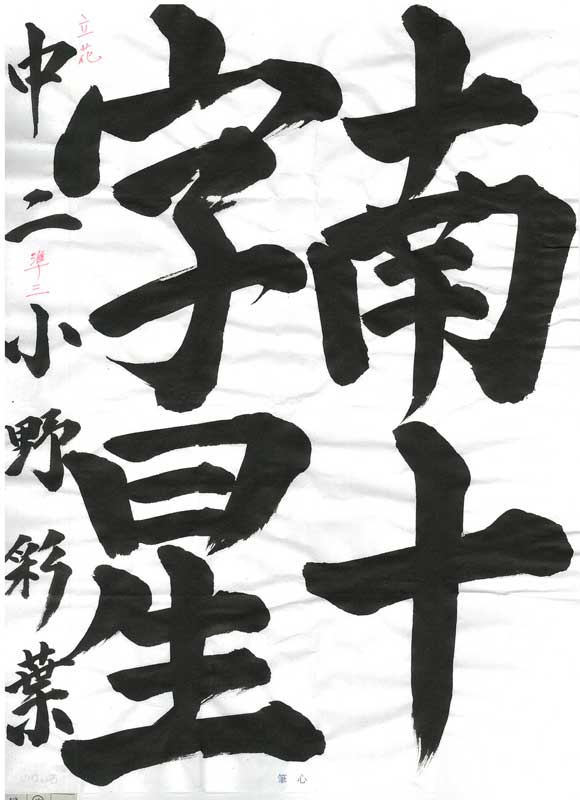 南十
字星
中二小野彩葉
立花
準三
筆心